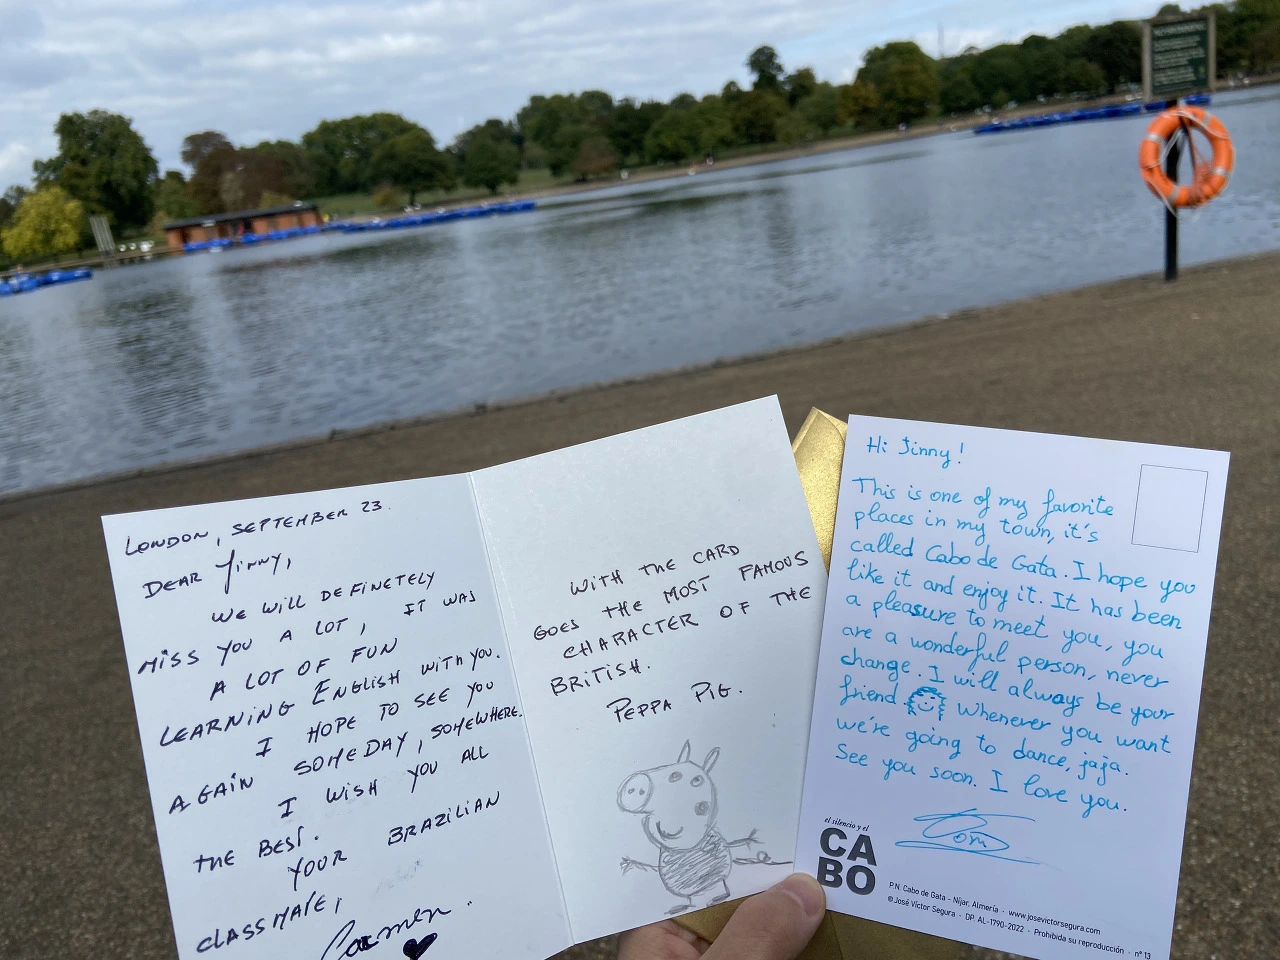 LONDON, SEPTEMBER 23.
DEAR Jinny,
WE WILL DEFINETELY
MISS YOU A LOT, IT WAS
A LOT OF FUN
LEARNING ENGLISH WITH YOU.
I HOPE TO SEE YOU
AGAIN SOMEDAY, SOMEWHERE.
I WISH YOU ALL
THE BEST.
YOUR BRAZILIAN
CLASSMATE,
Carmen.
WITH THE CARD
GOES THE MOST FAMOUS
CHARACTER OF THE
BRITISH.
PEPPA PIG.
Hi Jinny!
This is one of my favorite
places in my town, it's
called Cabo de Gata. I hope you
like it and enjoy it. It has been
a pleasure to meet you, you
are a wonderful person, never
change. I will always be your
friend Whenever you want
we're going to dance, jaja.
See you soon. I love you.
el silencio y el
CA
BO
P.N. Cabo de Gata - Níjar, Almería · www.josevictorsegura.com
© José Víctor Segura · DP. AL-1790-2022 · Prohibida su reproducción · nº 13